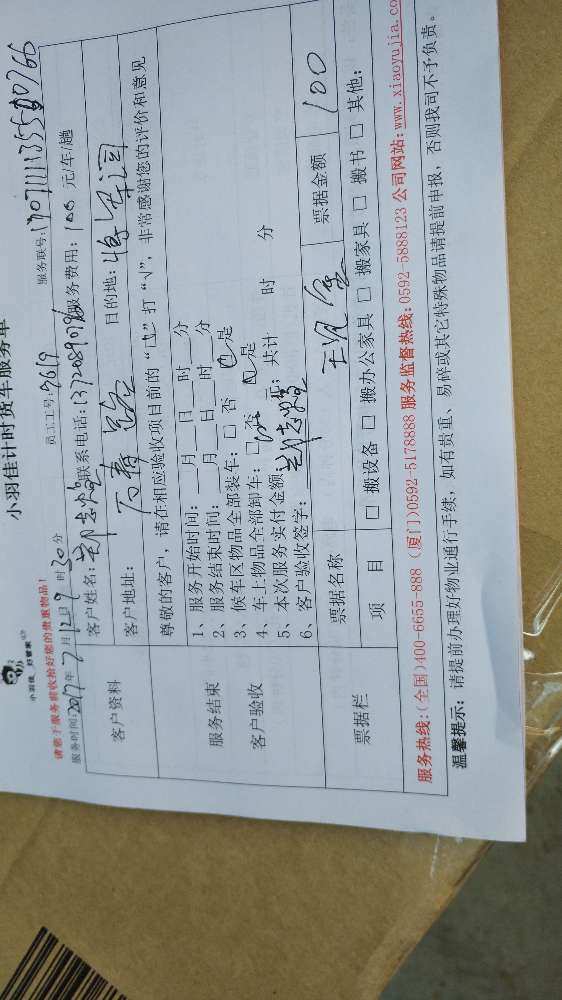 小羽佳计时货车服务单
小羽佳 好管家
请您于服务前收拾好您的贵重物品!
服务时间:2017年7月12日9时30分 员工工号:9619 服务联号:
客户资料
客户姓名: 联系电话: 服务费用:100元/车/趟
客户地址:万寿路 目的地:
尊敬的客户,请在相应验收项目前的“□”打“√”,非常感谢您的评价和意见
服务结束
客户验收
1、服务开始时间:___月___日___时___分
2、服务结束时间:___月___日___时___分
3、候车区物品全部装车:□ 否 □ 是
4、车上物品全部卸车:□ 否 □ 是
5、本次服务实付金额: 元; 共计 时 分
6、客户验收签字:
票据栏
票据名称 票据金额 100
项 目 □ 搬设备 □ 搬办公家具 □ 搬家具 □ 搬书 □ 其他:
服务热线:(全国)400-6655-888 (厦门)0592-5178888 服务监督热线:0592-5888123 公司网站:www.xiaoyujia.co
温馨提示:请提前办理好物业通行手续,如有贵重、易碎或其它特殊物品请提前申报,否则我司不予负责。